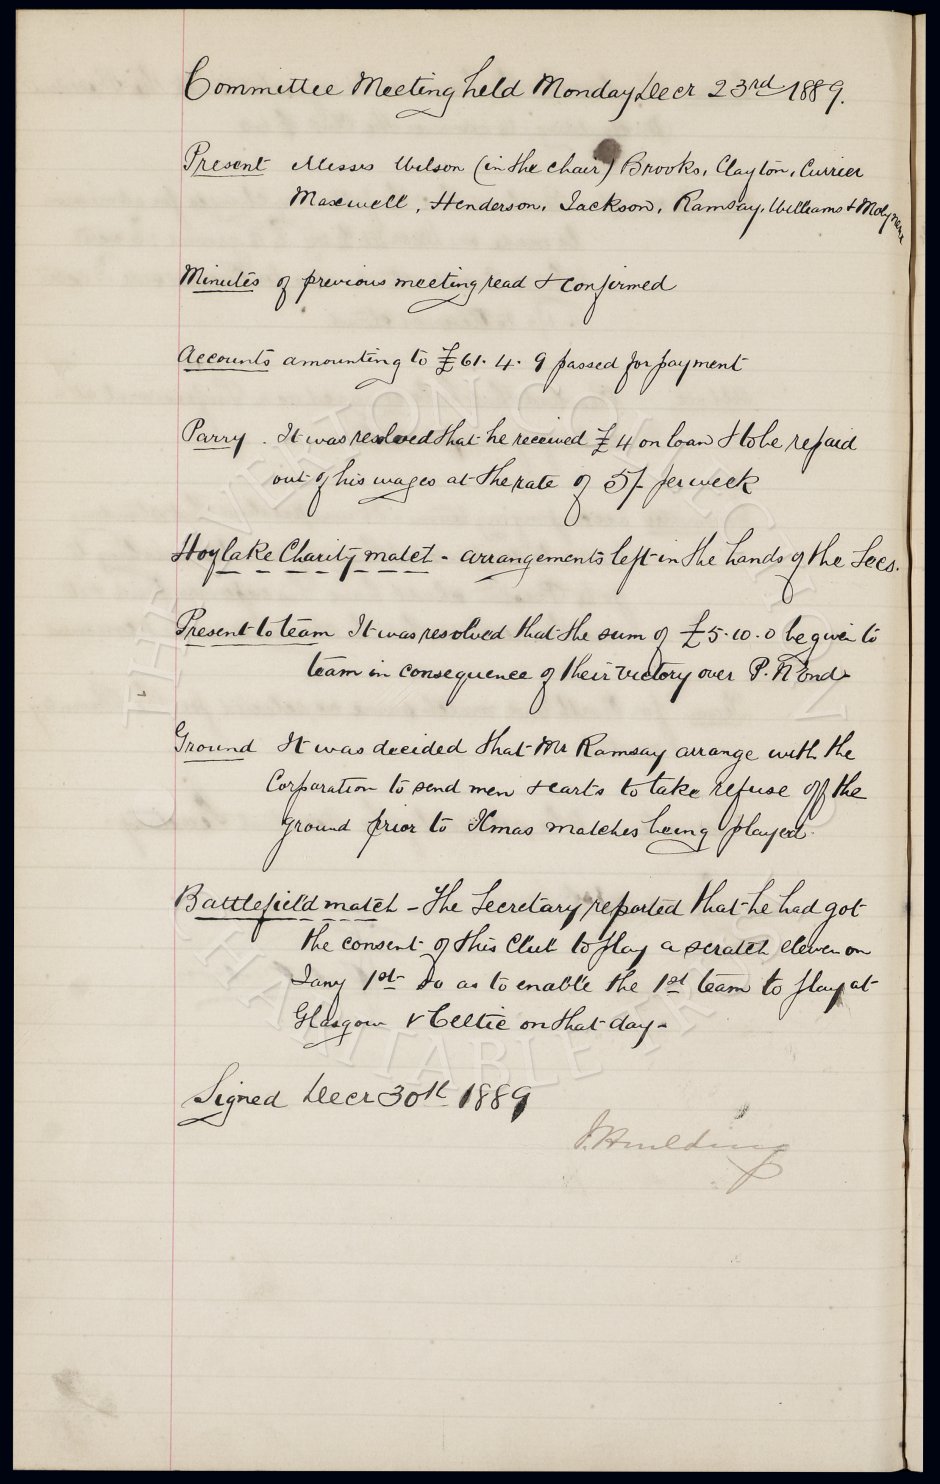 Committee Meeting held Monday Decr 23rd 1889.
Present Messrs Wilson (in the chair) Brooks, Clayton, Currier
Maxwell, Henderson, Jackson, Ramsay, Williams & Molyneux
Minutes of previous meeting read & confirmed
Accounts amounting to £61. 4. 9 passed for payment
Parry. It was resolved that he received £4 on loan & to be repaid
out of his wages at the rate of 5/- per week
Hoylake Charity match - arrangements left in the hands of the Secs.
Present to team It was resolved that the sum of £5.10.0 be given to
team in consequence of their victory over P. N End.
Ground It was decided that Mr Ramsay arrange with the
Corporation to send men & carts to take refuse off the
ground prior to Xmas matches being played.
Battlefield match - The Secretary reported that he had got
the consent of this Club to play a scratch eleven on
Jany 1st so as to enable the 1st team to play at
Glasgow v Celtic on that day.
Signed Decr 30th 1889
J. Houlding
THE EVERTON COLLECTION
CHARITABLE TRUST